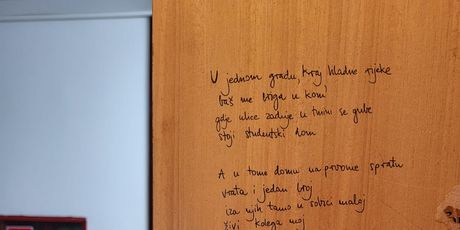 U jednom gradu, kraj hladne rijeke
baš me briga u kom
gdje ulice zadnje u tmini se gube
stoji studentski dom
A u tome domu na prvome spratu
vrata i jedan broj
iza njih tamo u sobici maloj
živi kolega moj